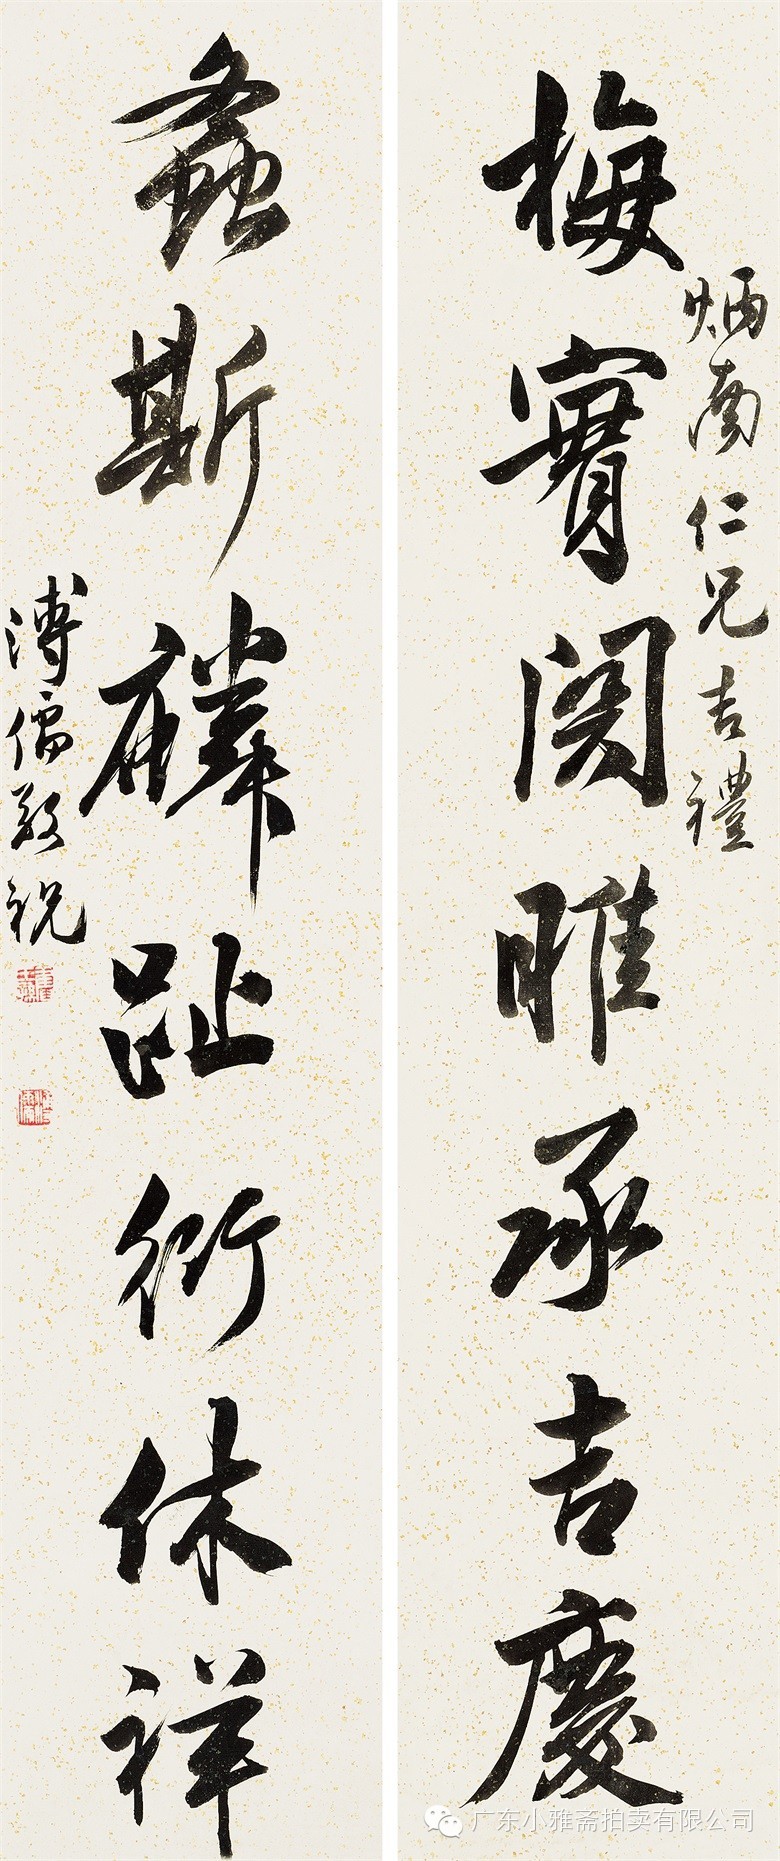 炳南仁兄吉禮
梅實關雎承吉慶
螽斯麟趾衍休祥
溥儒敬祝
广东小雅斋拍卖有限公司